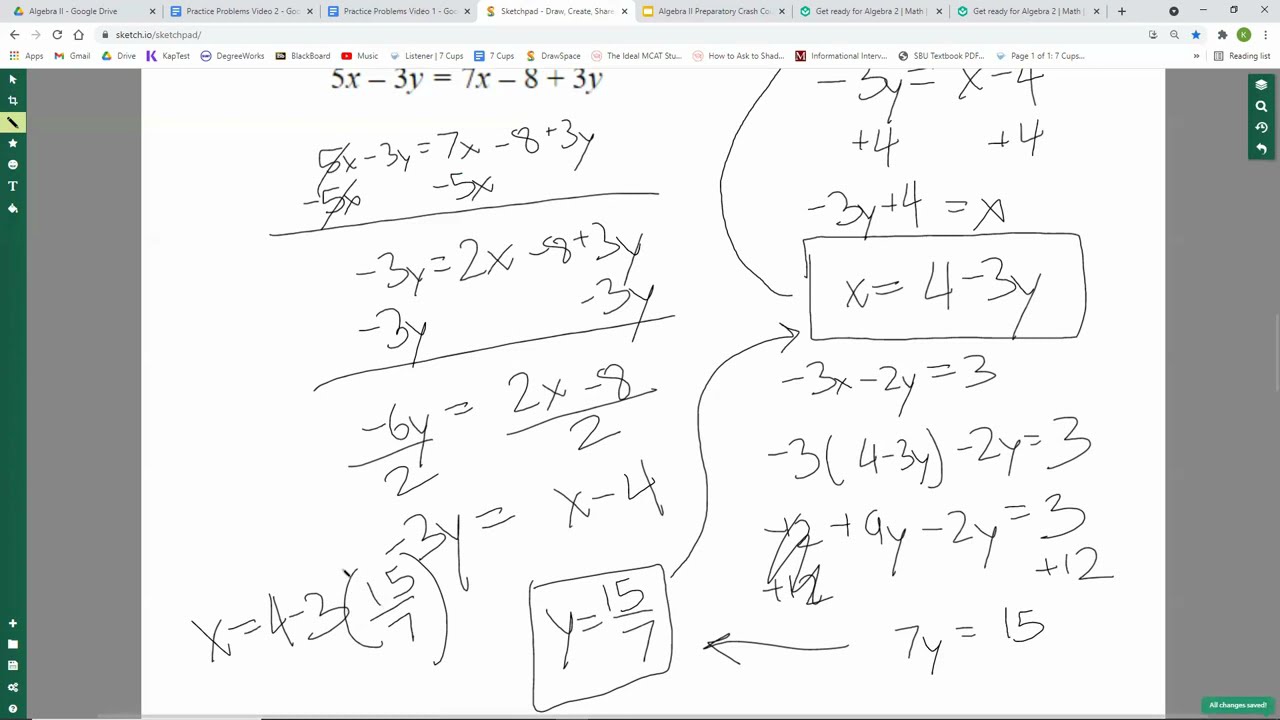 Algebra II - Google Drive
Practice Problems Video 2 - Goo
Practice Problems Video 1 - Goo
Sketchpad - Draw, Create, Share
Algebra II Preparatory Crash Co
Get ready for Algebra 2 | Math |
Get ready for Algebra 2 | Math |
sketch.io/sketchpad/
K
Apps
Gmail
Drive
KapTest
DegreeWorks
BlackBoard
Listener | 7 Cups
7 Cups
DrawSpace
The Ideal MCAT Stu...
How to Ask to Shad...
Informational Interv...
SBU Textbook PDF...
Page 1 of 1: 7 Cups...
Reading list
5x – 3y = 7x – 8 + 3y
5x-3y=7x-8+3y
-5x -5x
-3y=2x-8+3y
-3y -3y
-6y = 2x-8
2 2
-3y = x-4
x=4-3(15/7)
y=15/7
-3y= x-4
+4 +4
-3y+4 =x
x= 4-3y
-3x-2y=3
-3(4-3y)-2y=3
-12+9y-2y=3
+12 +12
7y = 15
All changes saved!